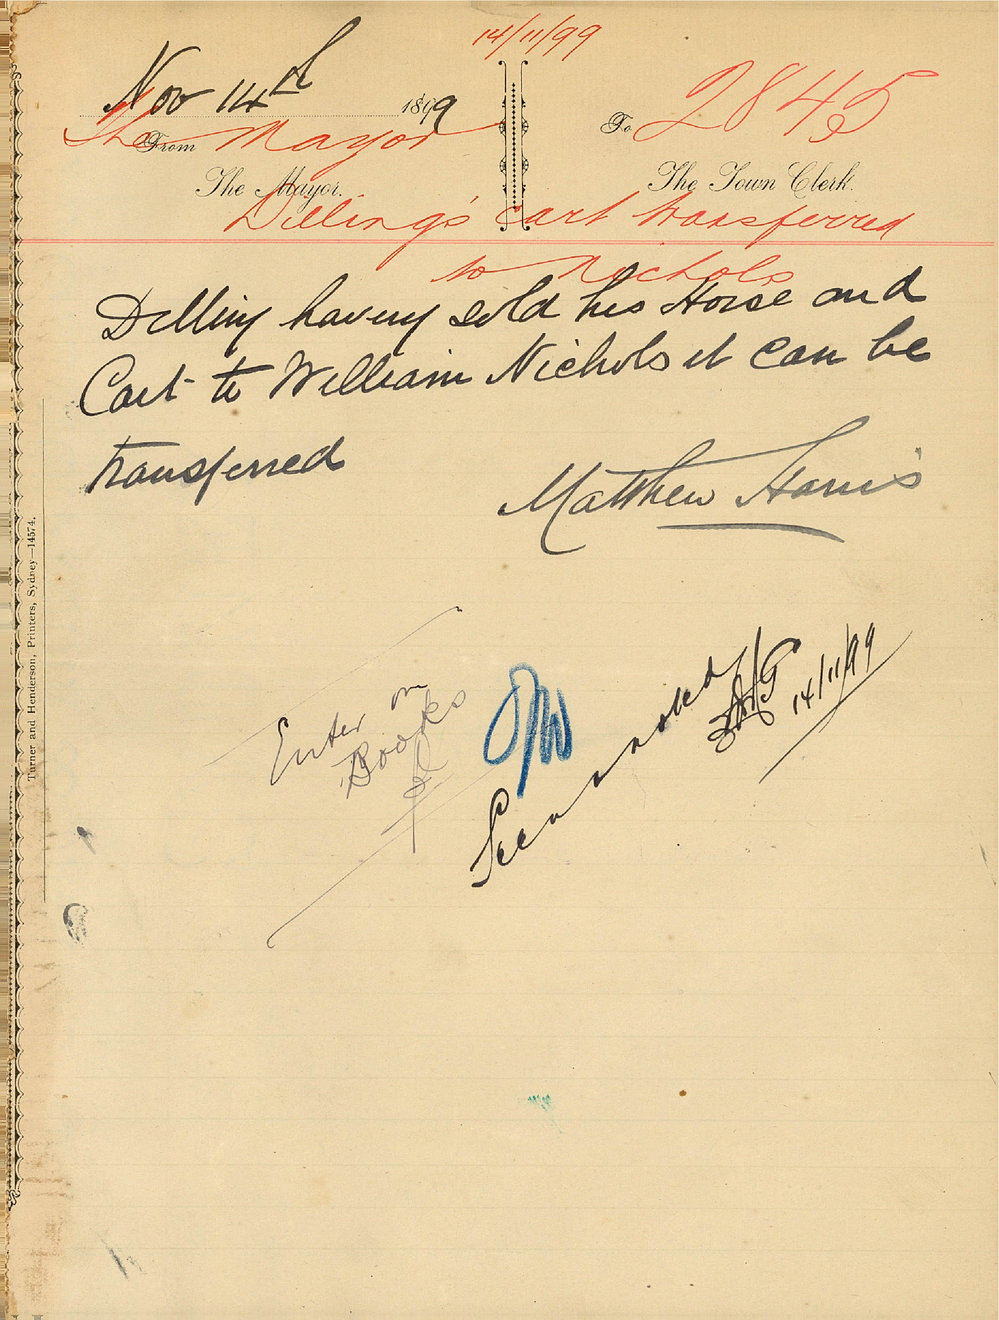 14/11/99
Nov 14th 1899
2845
The Mayor
From
To
The Mayor.
The Town Clerk.
Dilling's cart transferred
to Nichols
Dilling having sold his Horse and
Cart to William Nichols it can be
transferred
Matthew Harris
Enter on
Books
Seen noted
14/11/99
Turner and Henderson, Printers, Sydney—14574.